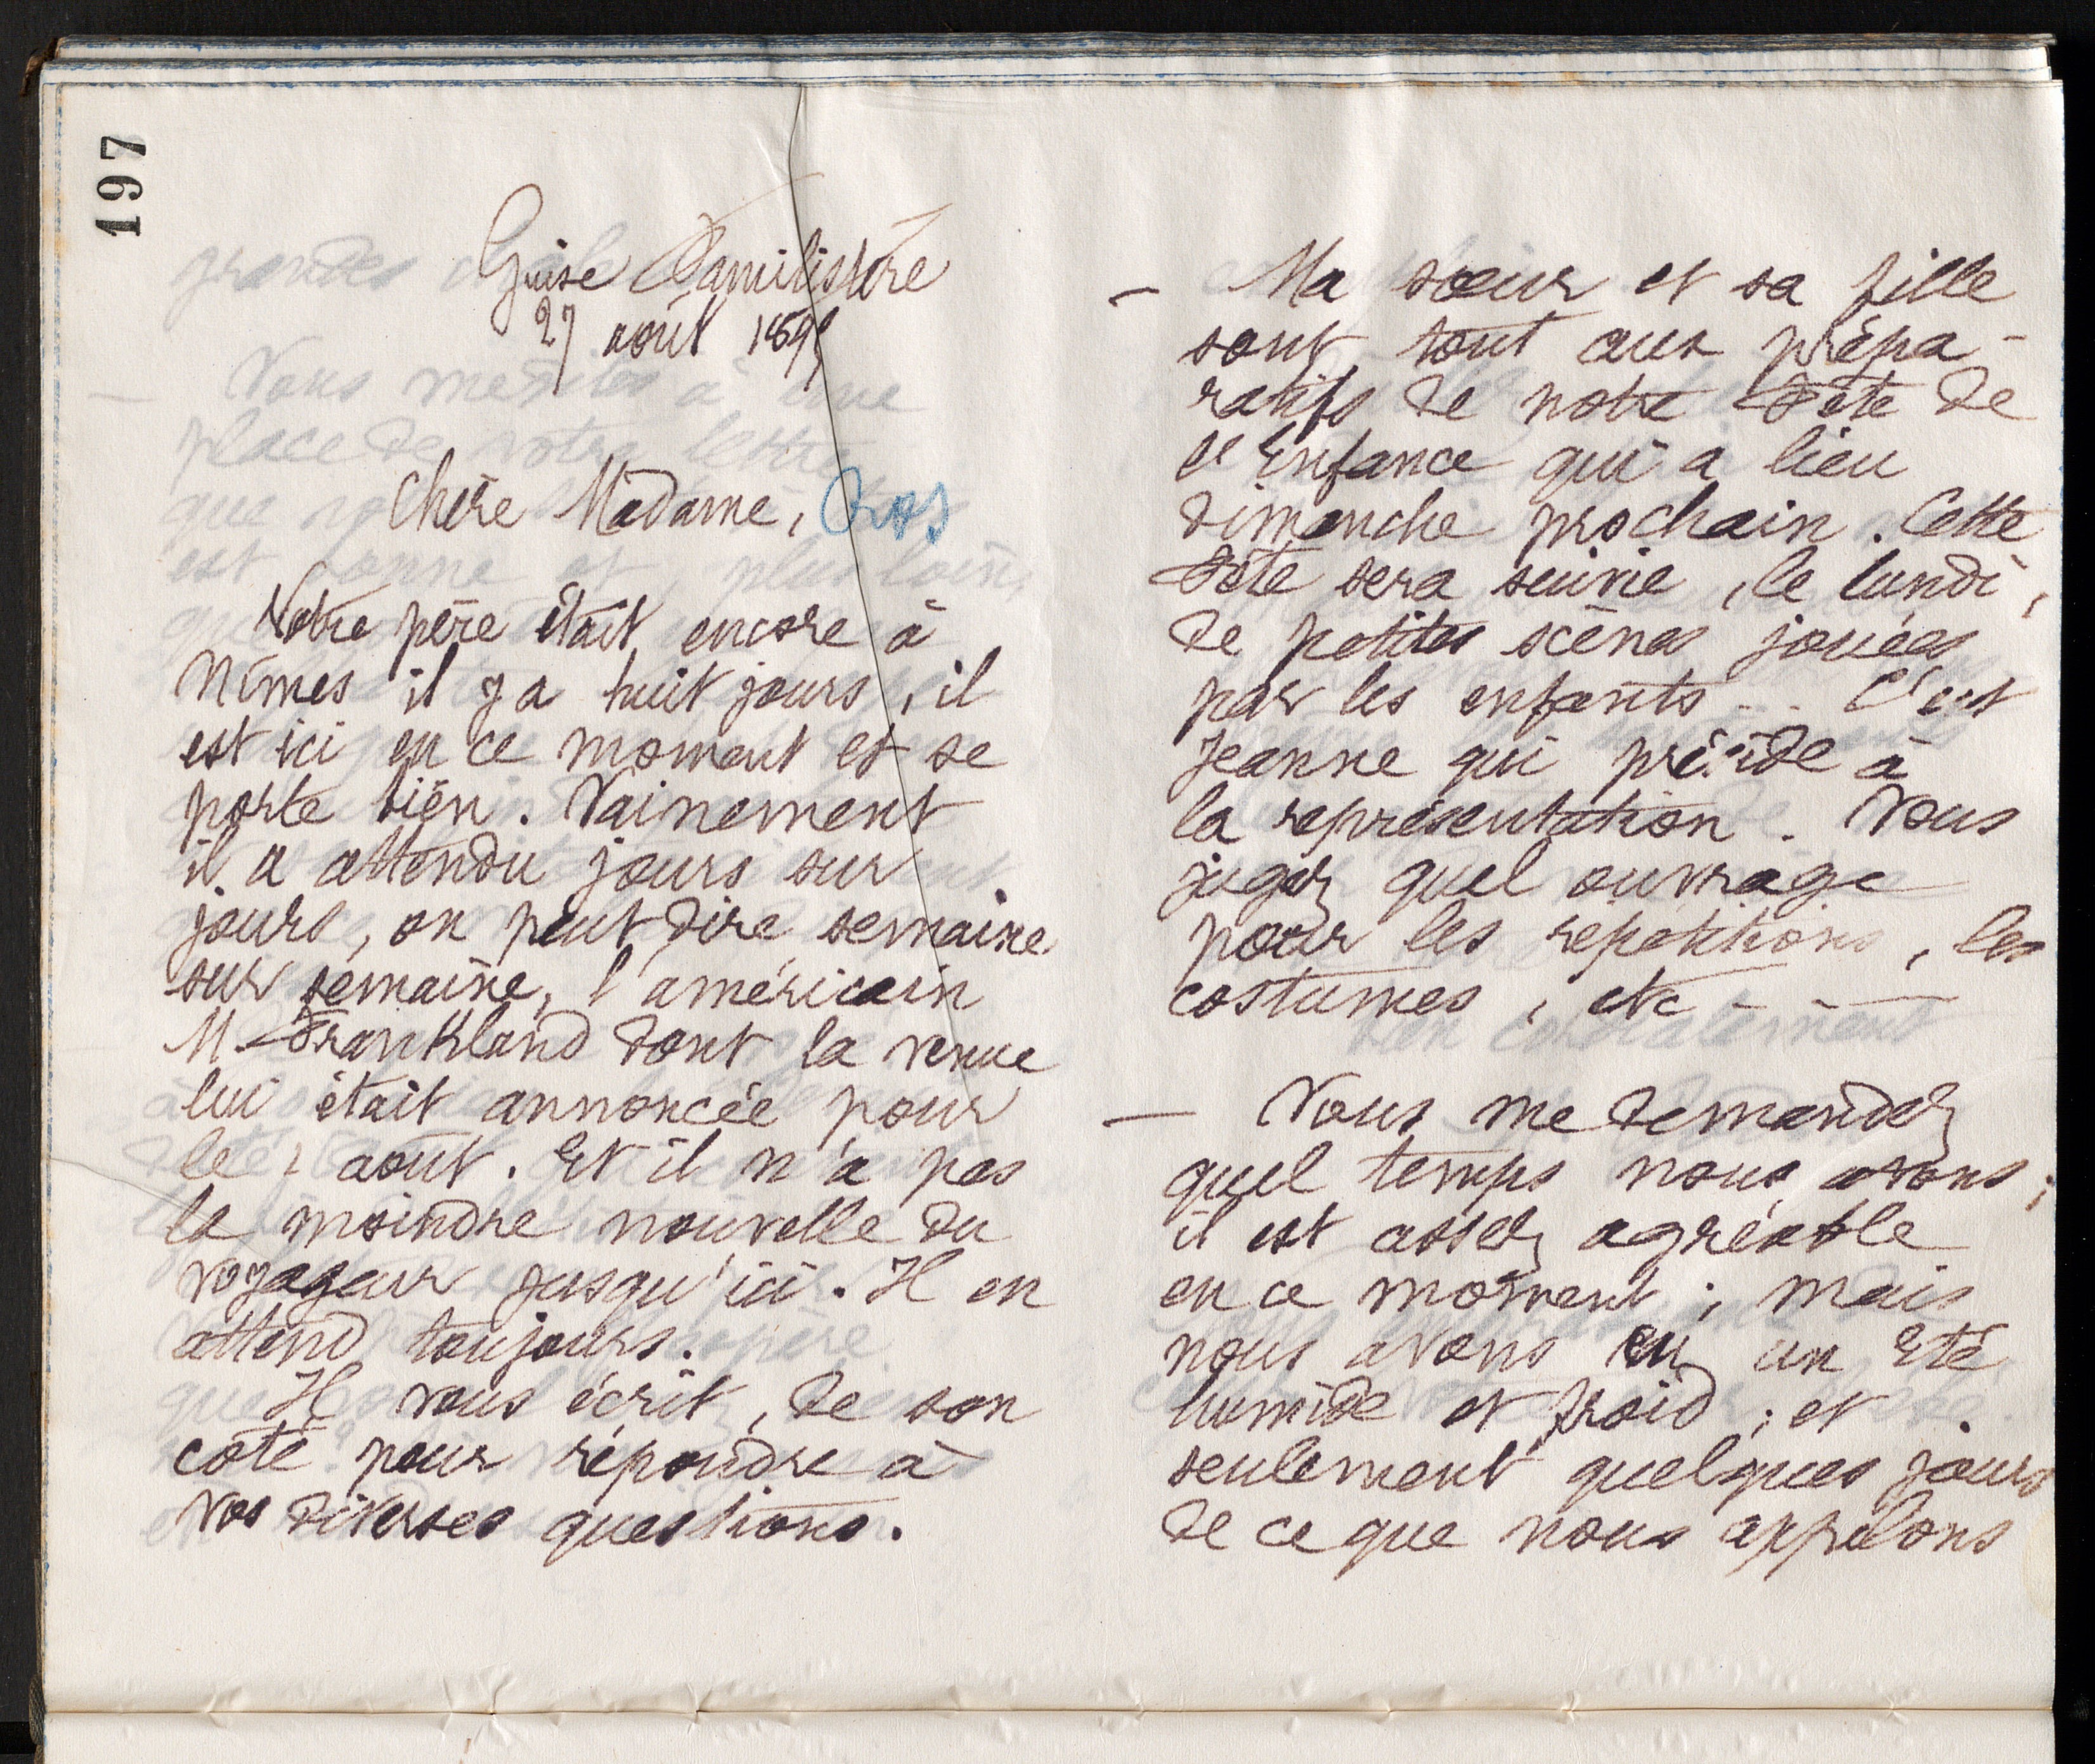 197
Guise Familistère
27 août 189
Chère Madame, Cros
Notre père était encore à
Nîmes il y a huit jours, il
est ici en ce moment et se
porte bien. Vainement
il a attendu jours sur
jours, on peut dire semaine
sur semaine, l'américain
M. Frankland dont la venue
lui était annoncée pour
le août. Et il n'a pas
la moindre nouvelle du
voyageur jusqu'ici. Il en
attend toujours.
Il vous écrit, de son
côté pour répondre à
vos diverses questions.
— Ma sœur et sa fille
sont tout aux prépa-
ratifs de notre Fête de
l'Enfance qui a lieu
dimanche prochain. Cette
Fête sera suivie, le lundi,
de petites scènes jouées
par les enfants... C'est
Jeanne qui préside à
la représentation. Vous
jugez quel ouvrage
pour les répétitions, les
costumes, etc - - —
— Vous me demandez
quel temps nous avons;
il est assez agréable
en ce moment; mais
nous avons eu un Eté
humide et froid; et
seulement quelques jours
de ce que nous appelons